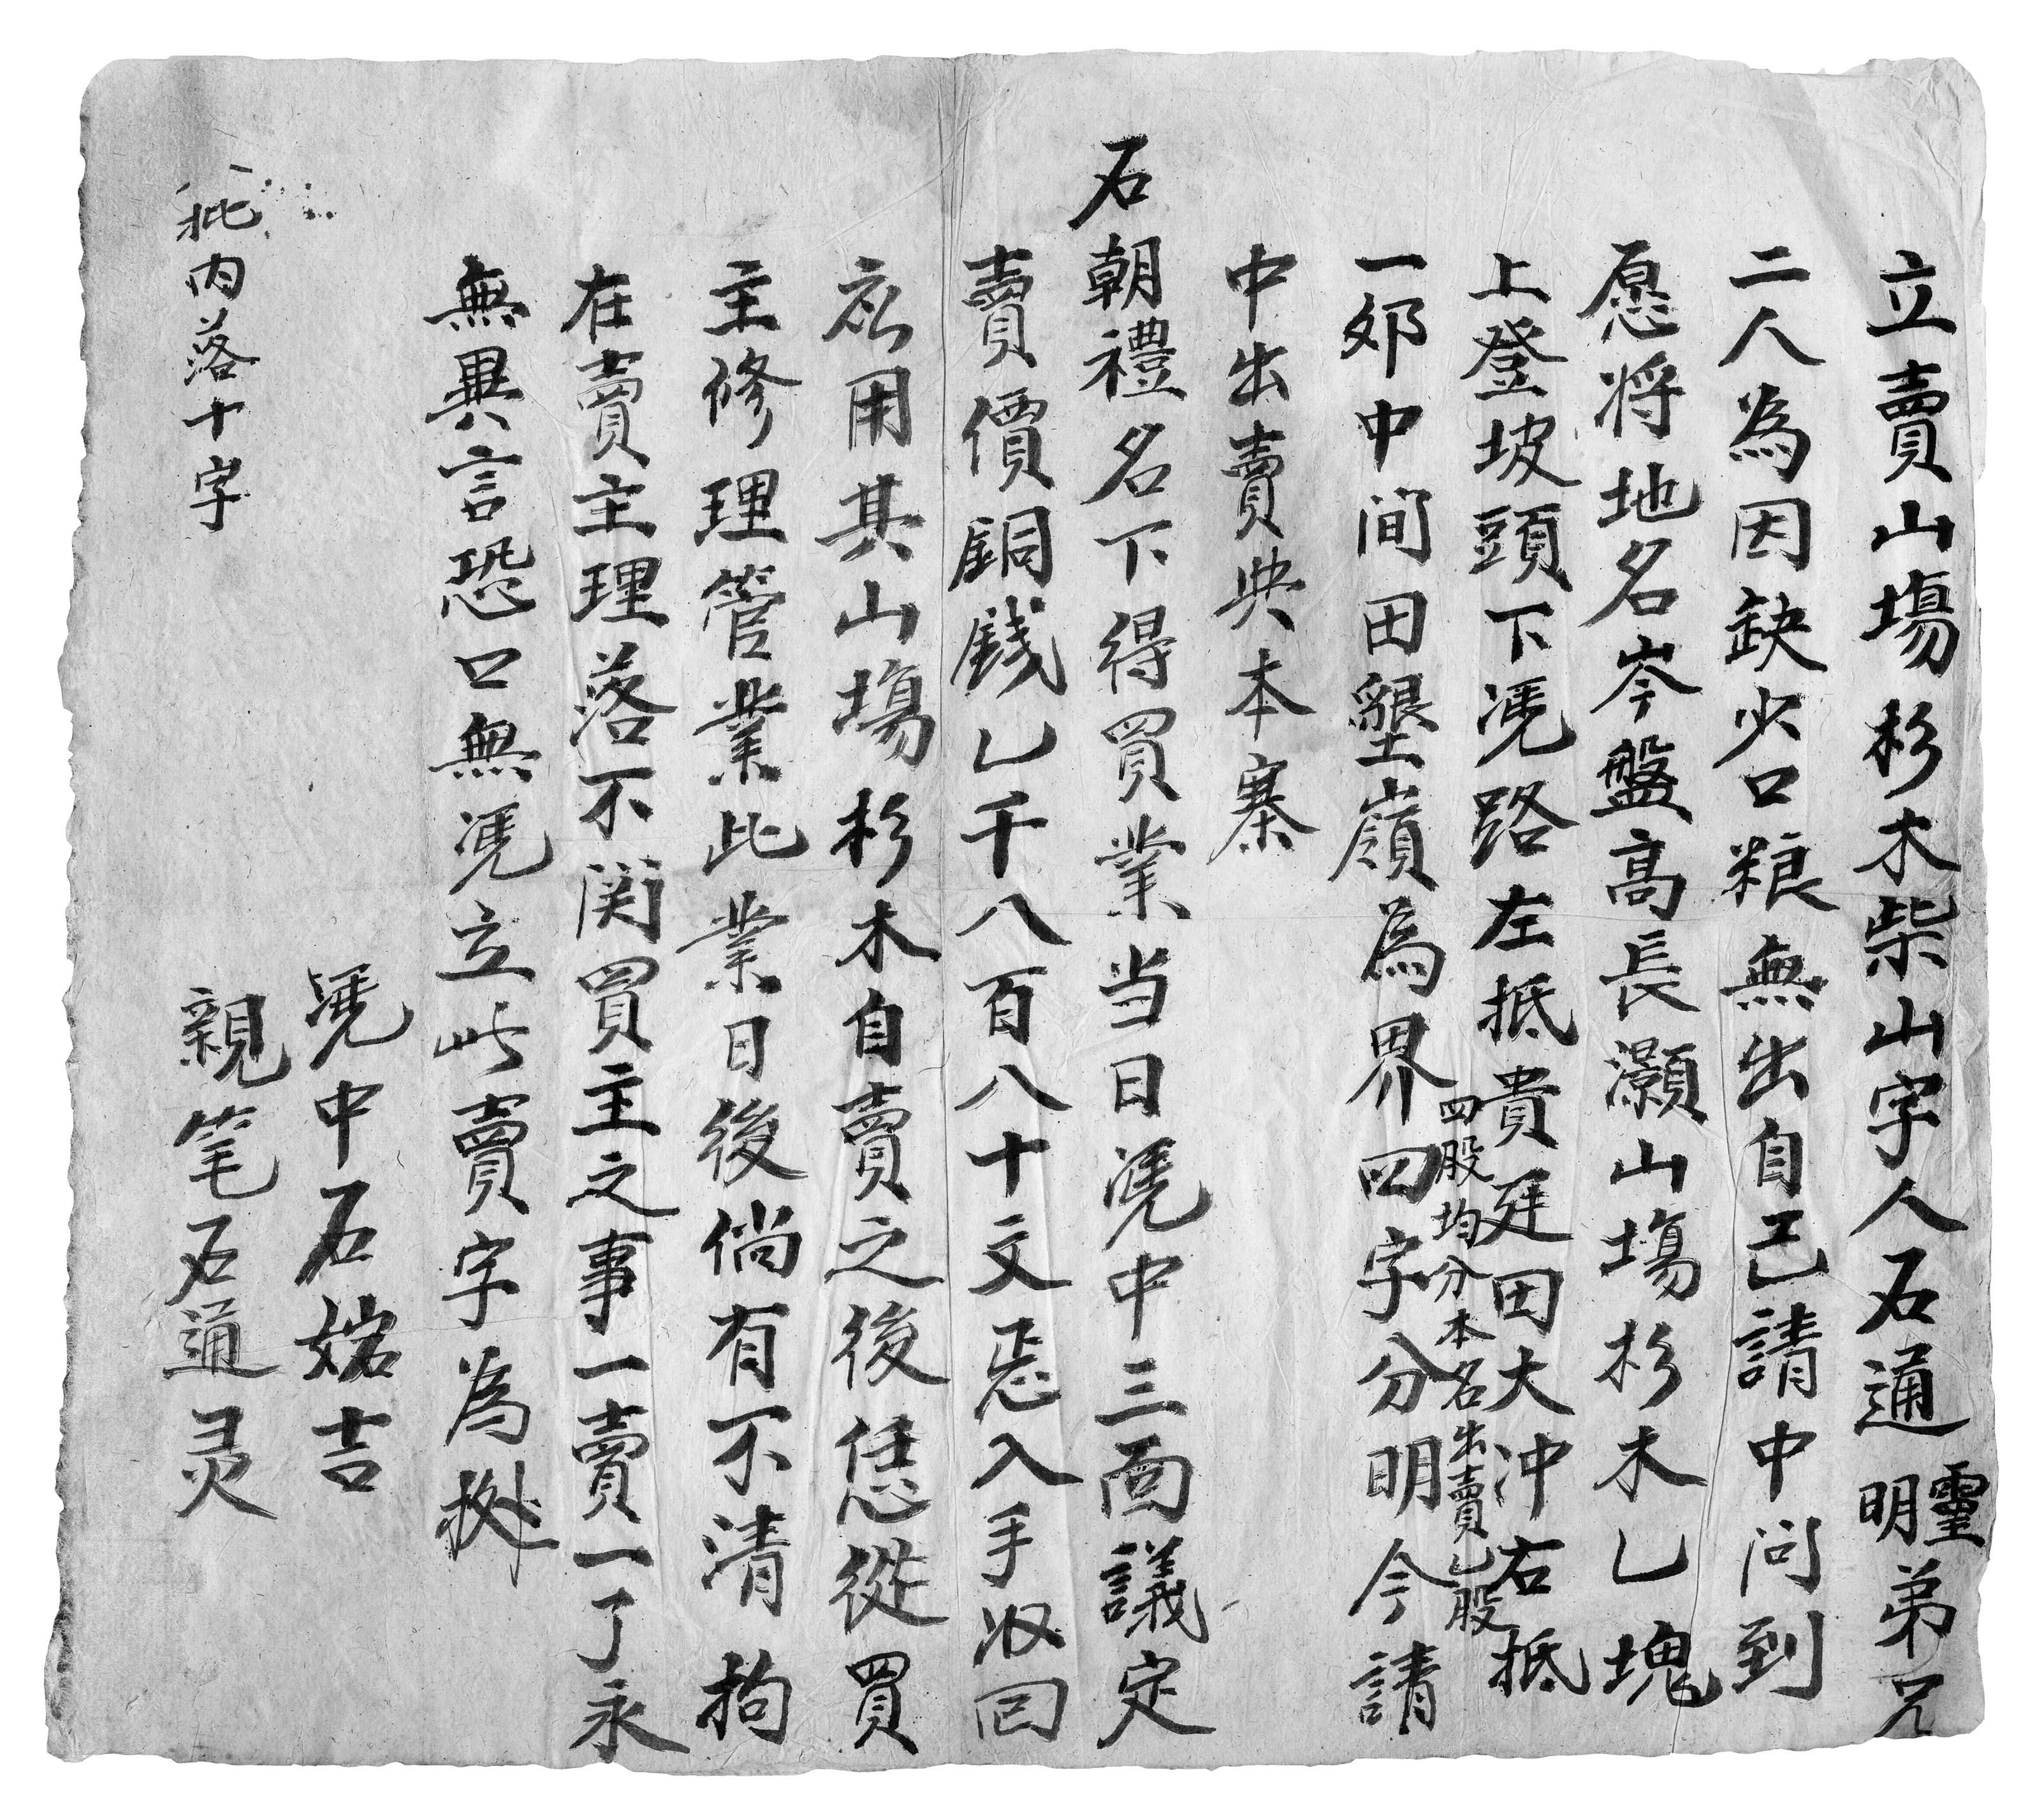 立賣山塲杉木柴山字人石通靈明弟兄
二人為因缺少口粮無出自己請中问到
愿将地名岑盤高長灝山塲杉木乚塊
上登坡頭下凴路左抵貴廷田大冲右抵
四股均分本名出賣乚股
一郊中间田墾嶺為界四字分明今請
中出賣與本寨
石朝禮名下得買業当日凴中三面議定
賣價銅錢乚千八百八十文悉入手收回
應用其山塲杉木自賣之後恁從買
主修理管業此業日後倘有不清拘
在賣主理落不関買主之事一賣一了永
無異言恐口無凴立此賣字為據
凴中石姳吉
親笔石通灵
批内落十字